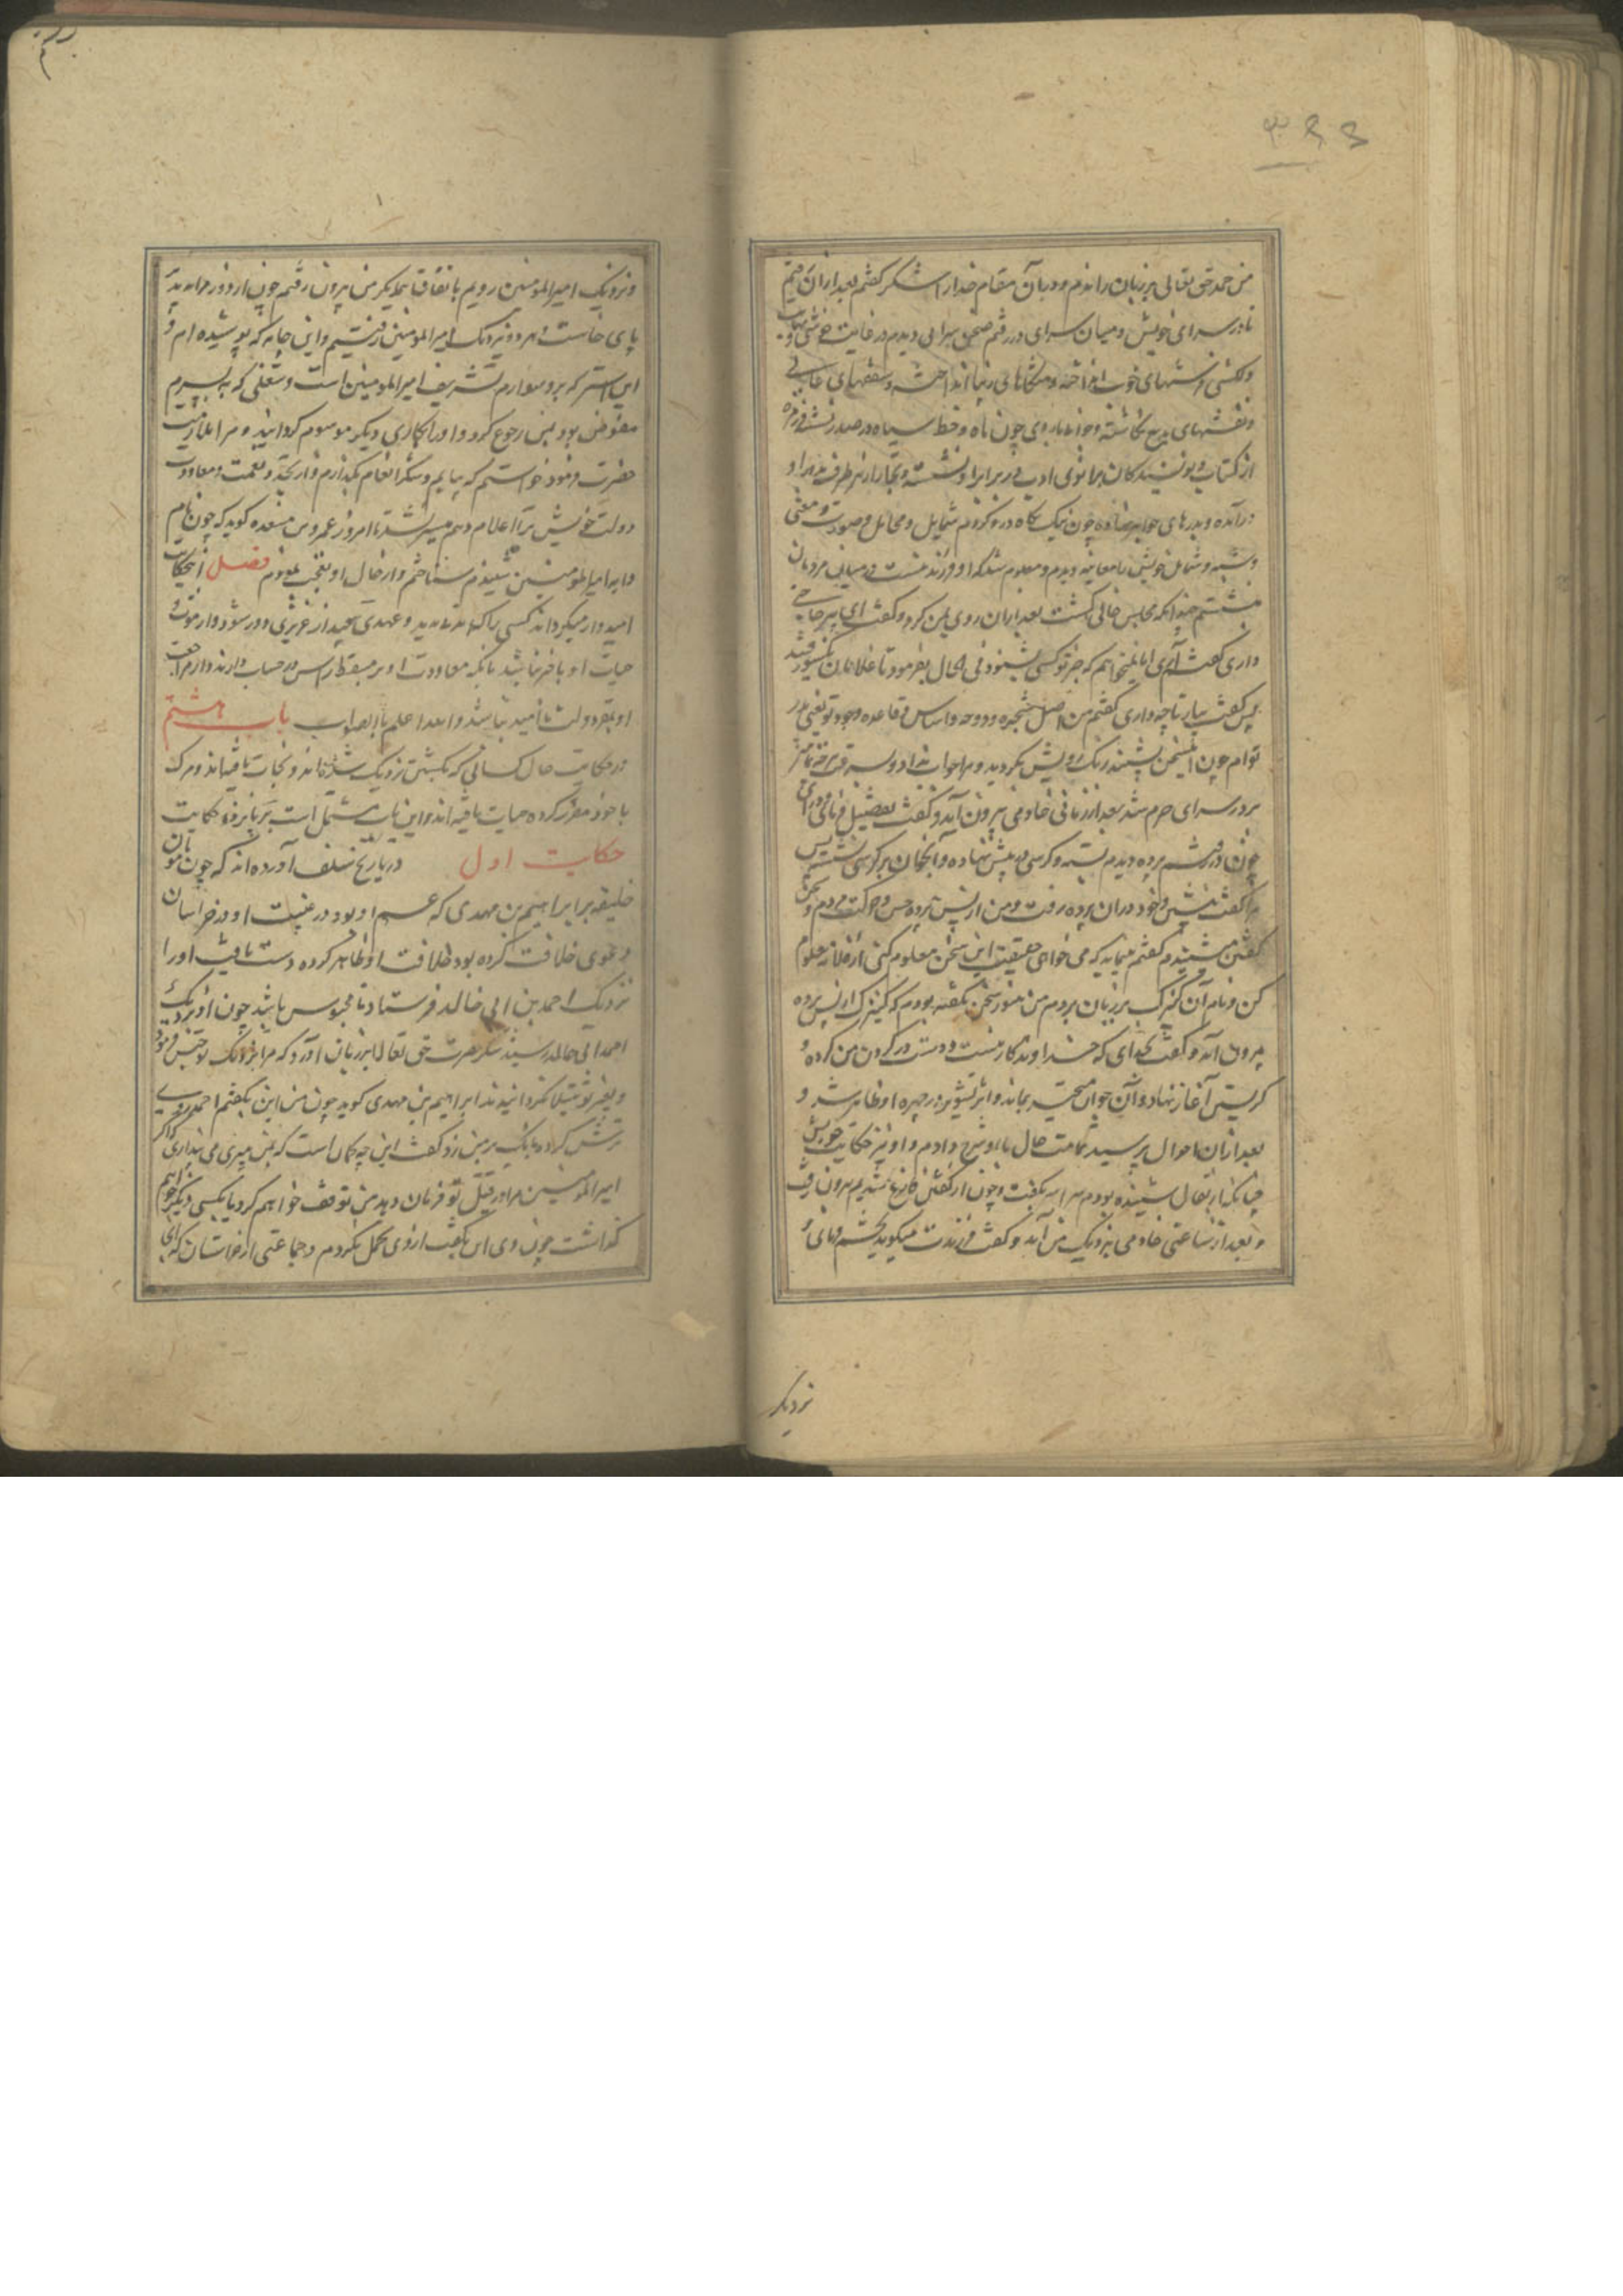 من حمد حق تعالی بر زبان راندم و در آن مقام خدا را شکر گفتم بعد از آن رفتم
تا در سرای خویش و میان سرای در رفتم صحن سرایی دیدم در غایت خوشی و
دلکشی و فرشهای خوب انداخته و متکاهای زیبا انداخته و سقفهای عالی
و نقشهای بدیع نگاشته و جوانی با روی چون ماه و خط سیاه در صدر نشسته
از کتاب و نویسندگان بزانوی ادب در برابر او نشسته و تجار از هر طرف نزد او
درآمده و بدرهای جواهر نهاده چون نیک نگاه در و کردم شمایل و مخایل و صورت و معنی
و شبه و شمایل خویش را معاینه دیدم و معلوم شد که او فرزند منست در میان مردمان
بنشستم چندانکه مجلس خالی گشت بعد از آن روی بمن کرد و گفت ای پیر حاجتی
داری گفتم آری اما نمیخواهم که جز تو کسی بشنود فی الحال بفرمود تا غلامان یکسو رفتند
پس گفت بیار تا چه داری گفتم من اصل شجره و دوحه و اساس قاعده وجود تو یعنی پدر
توام چون این سخن بشنید رنگ رویش بگردید و مرا جواب نداد و
بر در سرای حرم شد بعد از زمانی خادمی بیرون آمد و گفت بفضل فرمای
چون در رفتم پرده دیدم بسته و کرسی در پیش نهاده و آنجوان بر کرسی نشسته پس
مرا گفت بنشین و خود در آن پرده رفت و من از پس پرده حس و حرکت مردم و سخن
گفتن می شنیدم گفتم میباید که می خواهی حقیقت این سخن معلوم کنی از فلانه معلوم
کن و نام آن کنیزک بر زبان بردم من هنوز سخن نگفته بودم که کنیزک از پس پرده
بیرون آمد و گفت بخدای که خداوندگار منست و دست در گردن من کرده و
گریستن آغاز نهاد و آن جوان متحیر بماند و اثر تشویر در چهره او ظاهر شد و
بعد از آن احوال پرسید تمامت حال با او شرح دادم و او نیز حکایت خویش
چنانکه از بقال شنیده بودم سراسر بگفت و چون از گفتن فارغ شدیم بیرون رفت
و بعد از ساعتی خادمی بنزدیک من آمد و گفت فرزندت میگوید بحشم فرمای
نزدیک
و نزدیک امیرالمومنین رویم باتفاق یکدیگر من بیرون رفتم چون از دور مرا بدید
پای خاست و هر دو نزدیک امیرالمومنین رفتیم و این جامه که پوشیده ام و
این استر که برو سوارم تشریف امیرالمومنین است و شغلی که به پسرم
مفوض بود بمن رجوع کرد و او را بکاری دیگر موسوم گردانید و مرا
حضرت فرمود خواستم که بیایم و شکر انعام بگذارم و از تجدد نعمت و معاودت
دولت خویش ترا اعلام دهم میسر نشد تا امروز عمرو بن مسعده گوید که چون نام
دایه امیرالمومنین شنیدم بشناختم و از حال او تعجب نمودم فصل این حکایت
امیدوار میگرداند کسی را که مدتی مدید و عهدی بعید از عزیزی دور شود و از موت و
حیات او با خبر نباشد بآنکه معاودت او بر مستقر کند و از مراجعت
او بمقر دولت ناامید نباشد و الله اعلم بالصواب باب هشتم
در حکایت حال کسانی که بکشتن نزدیک شده اند و نجات یافته اند و مرگ
با خود مقرر کرده حیات یافته اند و این باب مشتمل است بر پانزده حکایت
حکایت اول در تاریخ سلف آورده اند که چون مامون
خلیفه بر ابراهیم بن مهدی که عم او بود در غیبت او در خراسان
دعوی خلافت کرده بود خلاف او ظاهر کرده دست یافت او را
نزدیک احمد بن ابی خالد فرستاد تا محبوس باشد چون او نزدیک
احمد ابی خالد رسید شکر حضرت حق تعالی بر زبان آورد که مرا بنزدیک تو حبس فرمود
و بغیر تو مبتلا نگردانیدند ابراهیم بن مهدی گوید چون من این بگفتم احمد روی
ترش کرد و بانگ بر من زد گفت این چه گمان است که بمن میبری می پنداری که اگر
امیرالمومنین مرا در قتل تو فرمان دهد من توقف خواهم کرد یا بکسی دیگر خواهم
گذاشت چون وی این بگفت از وی تحمل نکردم و جماعتی از خراسان که آنجا